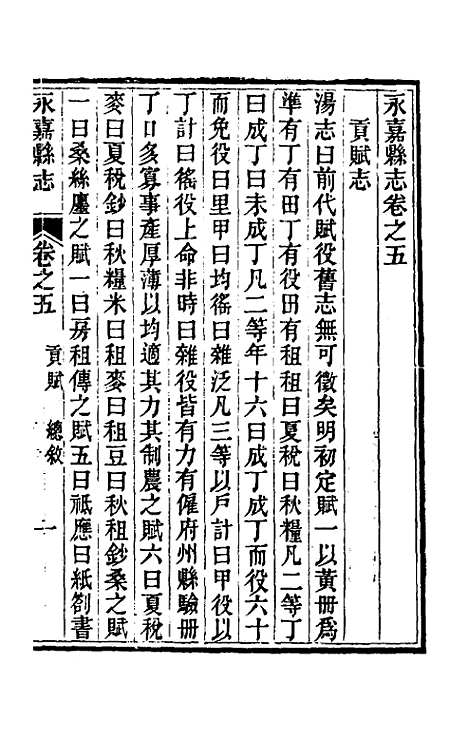 永嘉縣志卷之五
貢賦志
湯志曰前代賦役舊志無可徵矣明初定賦一以黃冊爲
準有丁有田丁有役田有租租曰夏稅曰秋糧凡二等丁
曰成丁曰未成丁凡二等年十六曰成丁成丁而役六十
而免役曰里甲曰均徭曰雜泛凡三等以戶計曰甲役以
丁計曰徭役上命非時曰雜役皆有力有僱府州縣驗冊
丁口多寡事產厚薄以均適其力其制農之賦六曰夏稅
麥曰夏稅鈔曰秋糧米曰租麥曰租豆曰秋租鈔桑之賦
一曰桑絲廛之賦一曰房租傳之賦五曰祗應曰紙劄書
永嘉縣志 卷之五 貢賦 總敘 一